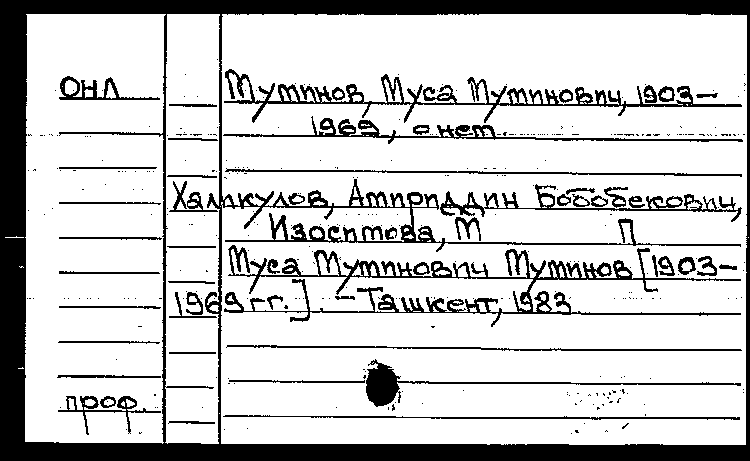 ОНЛ
Муминов, Муса Муминович, 1903–
1969, о нем.
Халикулов, Амириддин Бобобекович,
Изосимова, М П
Муса Муминович Муминов [1903–
1969 гг.]. – Ташкент, 1983
проф.